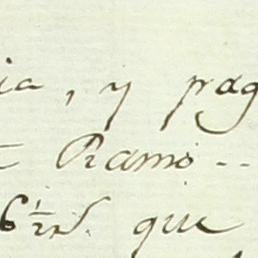 ia, y pag
Ramo --
6 1/2 rs. que